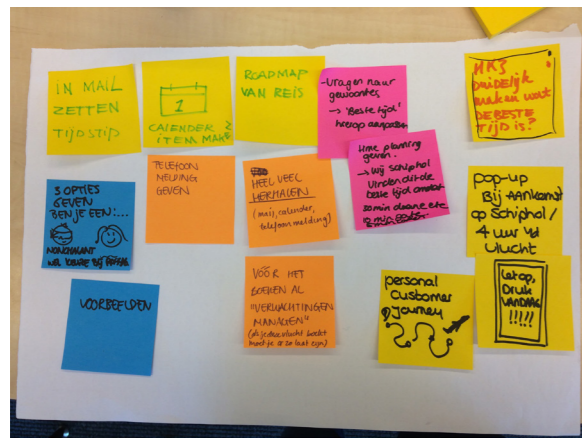 IN MAIL
ZETTEN
TIJDSTIP
1
CALENDER
ITEM MAKE
ROADMAP
VAN REIS
-Vragen naar
gewoontes
→ 'Beste tijd'
hierop aanpassen
HK3
Duidelijk
maken wat
DE BESTE
TIJD is?
3 OPTIES
GEVEN
BEN JE EEN:...
NONCHALANT
TELEFOON
MELDING
GEVEN
HEEL VEEL
HERHALEN
(mail, calender,
telefoonmelding)
time planning
geven.
→ Wij schiphol
vinden dit de
beste tijd omdat
20 min douane etc
10 min
pop-up
Bij AANKOMST
op Schiphol/
4 uur vd
vlucht
VOORBEELDEN
VÓÓR HET
BOEKEN AL
"VERWACHTINGEN
MANAGEN"
(als je deze vlucht boekt
moet je er zo laat zijn)
personal
customer
journey
Let op,
DRUK
VANDAAG
!!!!!